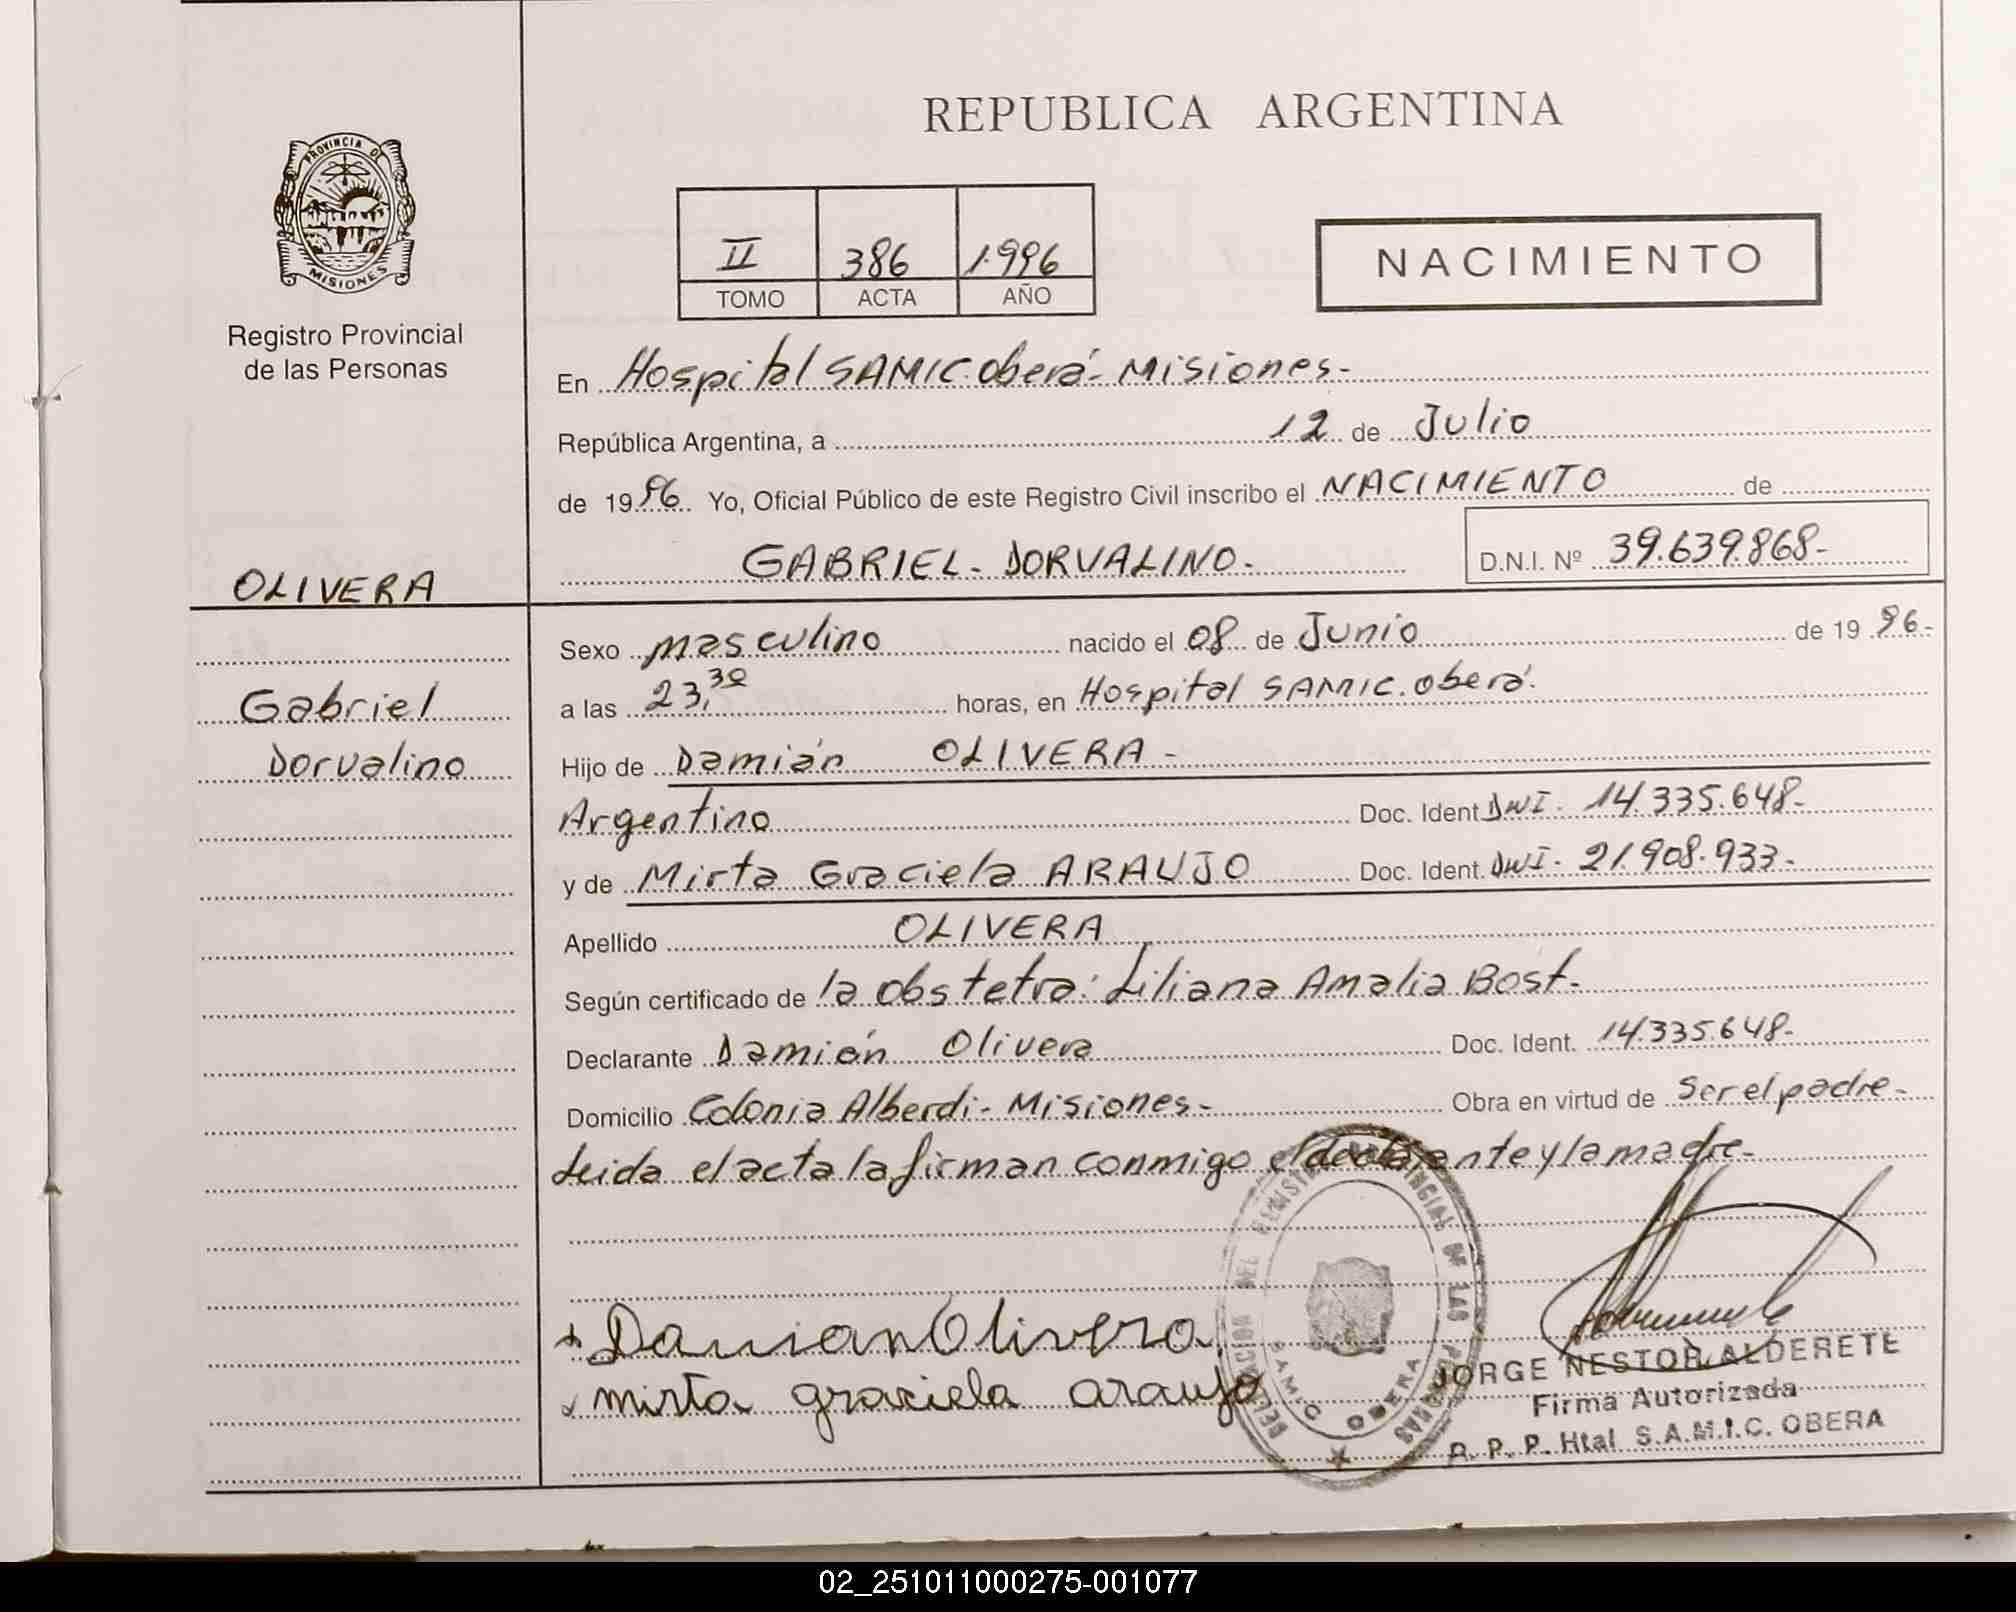 REPUBLICA ARGENTINA
PROVINCIA DE
MISIONES
Registro Provincial
de las Personas
II 386 1.996
TOMO ACTA AÑO
NACIMIENTO
En Hospital SAMIC. Oberá - Misiones.-
República Argentina, a 12 de Julio
de 1996 Yo, Oficial Público de este Registro Civil inscribo el NACIMIENTO de
GABRIEL - DORVALINO.- D.N.I. Nº 39.639.868-
OLIVERA
Gabriel
Dorvalino
Sexo masculino nacido el 08 de Junio de 1996.-
a las 23,30 horas, en Hospital SAMIC. Oberá.
Hijo de Damián OLIVERA -
Argentino Doc. Ident DNI- 14.335.648-
y de Mirta Graciela ARAUJO Doc. Ident. DNI- 21.908.933-
Apellido OLIVERA
Según certificado de la obstetra: Liliana Amalia Bost.-
Declarante Damián Olivera Doc. Ident. 14.335.648-
Domicilio Colonia Alberdi - Misiones.- Obra en virtud de ser el padre-
Leida el acta la firman conmigo el declarante y la madre-
Damian Olivera
mirta graciela araujo
DELEGACION DEL REGISTRO PROVINCIAL DE LAS PERSONAS
SAMIC OBERA
JORGE NESTOR ALDERETE
Firma Autorizada
R. P. P. Htal S.A.M.I.C. OBERA
02_251011000275-001077